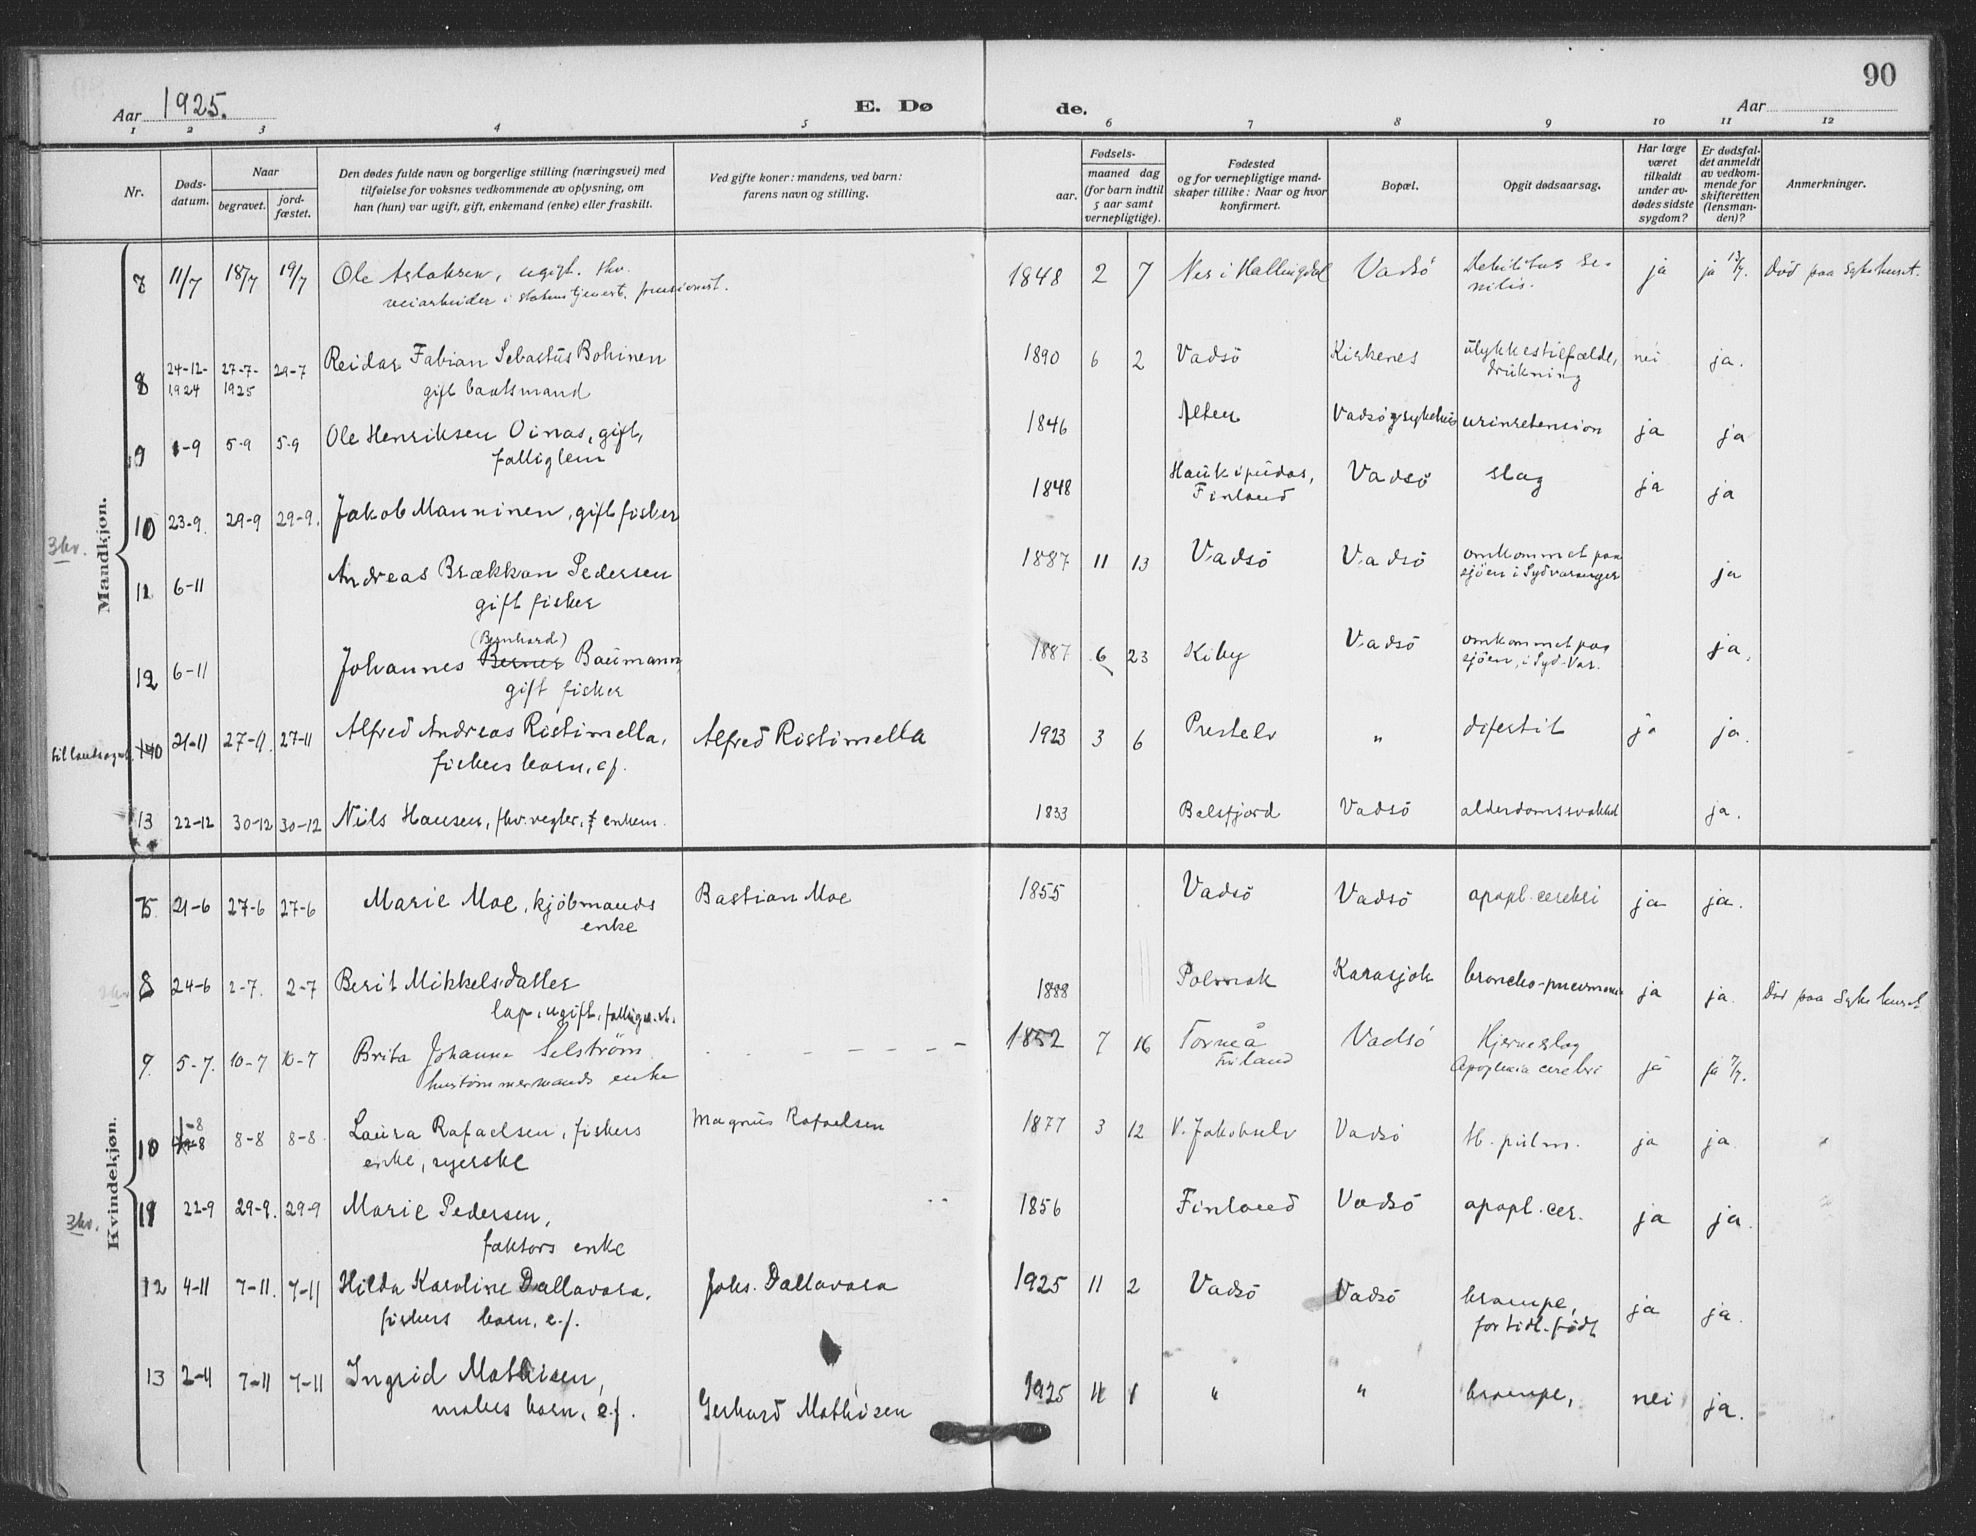 90
Aar 1925.
E. Dø
de.
Aar
1 2 3 4 5 6 7 8 9 10 11 12
Nr.
Døds-
datum.
Naar
begravet.
jord-
fæstet.
Den dødes fulde navn og borgerlige stilling (næringsvei) med
tilføielse for voksnes vedkommende av oplysning, om
han (hun) var ugift, gift, enkemand (enke) eller fraskilt.
Ved gifte koner: mandens, ved barn:
farens navn og stilling.
Fødsels-
aar.
maaned dag
(for barn indtil
5 aar samt
vernepligtige).
Fødested
og for vernepligtige mand-
skaper tillike: Naar og hvor
konfirmert.
Bopæl.
Opgit dødsaarsag.
Har læge
været
tilkaldt
under av-
dødes sidste
sygdom?
Er dødsfal-
det anmeldt
av vedkom-
mende for
skifteretten
(lensman-
den)?
Anmerkninger.
Mandkjøn.
3 kv.
7 11/7 18/7 19/7 Ole Aslaksen, ugift. fhv. 1848 2 7 Nes i Hallingdal Vadsö Debilitas se- ja ja Död paa Sykehuset.
veiarbeider i statens tjenest. pensionist. nilis.
8 24-12- 27-7- 29-7 Reidar Fabian Sebastüs Bohinen 1890 6 2 Vadsö Kirkenes ülykkestilfælde, nei ja.
1924 1925 gift baatsmand drükning
9 1-9 5-9 5-9 Ole Henriksen Oinas, gift, 1846 Alten Vadsö sykehüs urinretension ja ja
fattiglem
10 23-9. 29-9 29-9. Jakob Manninen, gift fisker 1848 Haükipüdas, Vadsö slag ja ja
Finland
11 6-11 Andreas Brækkan Pedersen 1887 11 13 Vadsö Vadsö omkommet paa ja
gift fisker sjöen i Sydvaranger
(Bernhard)
12 6-11 Johannes Berner Baümann, 1887 6 23 Kiby Vadsö omkommet paa ja.
gift fisker sjöen, i Syd-Var.
21-11 27-11. 27-11 Alfred Andreas Ristimella, Alfred Ristimella 1923 3 6 Prestelv " difterit ja ja.
fiskers barn, e.f.
13 22-12 30-12 30-12 Nils Hansen, fhv. enkem. 1833 Balsfjord Vadsö alderdomssvakhet ja.
Kvindekjøn.
3 kv.
7 21-6 27-6 27-6 Marie Moe, kjöbmands Bastian Moe 1855 Vadsö Vadsö apopl. cerebri ja ja.
enke
8 24-6 2-7. 2-7 Berit Mikkelsdatter 1888 Polmak Karasjok broncho-pneumoni ja ja. Död paa Sykehuset
lap, ugift,
9. 5-7. 10-7 10-7 Brita Johanne Selström 1852 7 16 Torneå Vadsö Hjerneslag ja ja 7/7.
hustömmermands enke Finland Apoplexia cerebri
10 1-8 8-8 8-8. Laura Rafaelsen, fiskers Magnüs Rafaelsen 1877 3 12 V. Jakobselv Vadsö tb. pülm. ja ja.
enke, syerske
11 22-9 29-9. 29-9 Marie Pedersen, 1856 Finland Vadsö apopl. cer. ja ja.
faktors enke
12 4-11 7-11. 7-11 Hilda Karoline Dallavara, Johs. Dallavara 1925 11 2 Vadsö Vadsö krampe, ja ja.
fiskers barn, e.f. for tidl. födt
13 2-11 7-11 7-11 Ingrid Mathisen, Gerhard Mathisen 1925 11 1 " " krampe, nei ja.
malers barn, e.f.